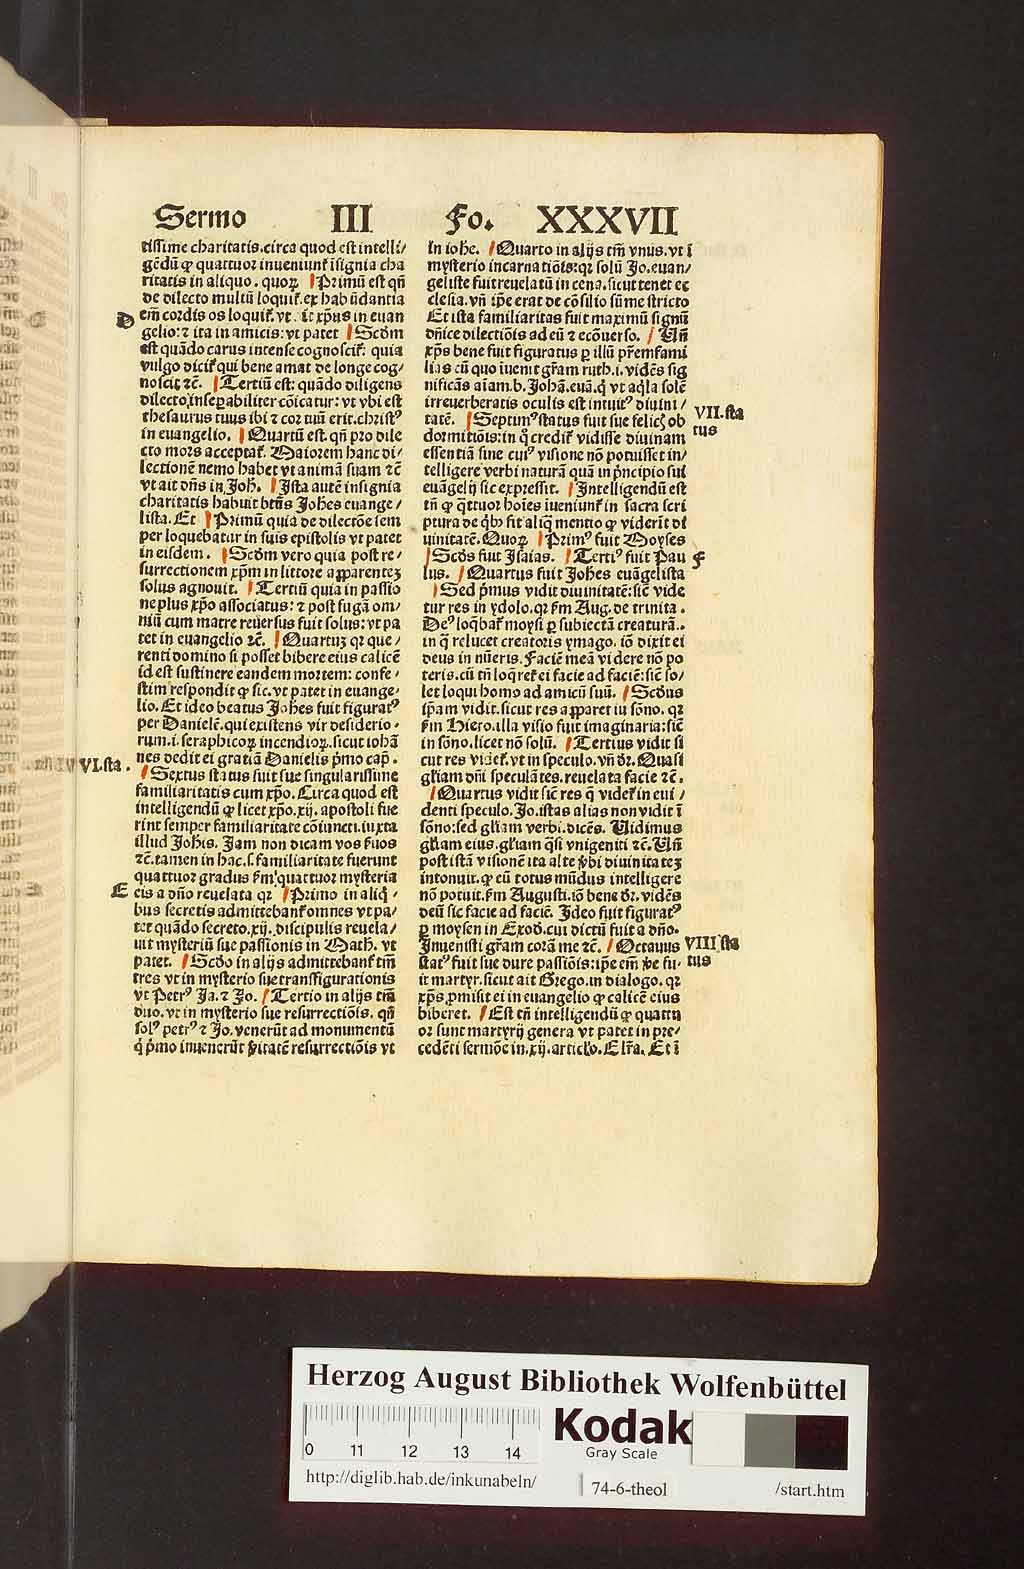 Sermo III Fo. XXXVII
tissime charitatis.circa quod est intelli/
gēdū ꝙ quattuor inueniunt᷑ īsignia cha
ritatis in aliquo. quoꝝ Primū est qñ
de dilecto multū loquit᷑.ex habūdantia
D
em̄ cordis os loquit᷑.vt. it xp̄us in euan
gelio: ⁊ ita in amicis: vt patet Scd̄m
est quādo carus intense cognoscit᷑: quia
vulgo dicit᷑ qui bene amat de longe cog/
noscit ⁊c̄. Tertiū est: quādo diligens
dilecto inseꝑabiliter cōicatur: vt vbi est
thesaurus tuus ibi ⁊ cor tuū erit.christꝰ
in euangelio. Quartū est. qñ pro dile
cto mors acceptat᷑. Maiorem hanc di/
lectionē nemo habet vt animā suam ⁊c̄
vt ait dn̄s in Joh. Ista autē insignia
charitatis habuit btūs Johes euange/
lista. Et Primū quia de dilectōe sem
per loquebatur in suis epistolis vt patet
in eisdem. Scd̄m vero quia post re/
surrectionem xp̄m in littore apparentez
solus agnouit. Tertiū quia in passio
ne plus xp̄o associatus: ⁊ post fugā om/
niū cum matre reuersus fuit solus: vt pa
tet in euangelio ⁊c̄. Quartuz qr que/
renti domino si posset bibere eius calicē
id est sustinere eandem mortem: confe/
stim respondit ꝙ sic.vt patet in euange/
lio. Et ideo beatus Johes fuit figuratꝰ
per Danielē.qui existens vir desiderio/
rum.i.seraphicoꝝ incendioꝝ.sicut iohā
nes dedit ei gratiā Danielis p̄mo cap̄.
VI.sta.
Sextus status fuit sue singularissime
familiaritatis cum xp̄o. Circa quod est
intelligendū ꝙ licet xp̄o.xij.apostoli fue
rint semper familiaritate cōiuncti.iuxta
illud Johis. Jam non dicam vos ẜuos
⁊c̄.tamen in hac.s.familiaritate fuerunt
quattuor gradus ẜm quattuor mysteria
E
eis a dn̄o reuelata qr Primo in aliq̄/
bus secretis admittebant᷑ omnes vt pa/
tet quādo secreto.xij.discipulis reuela/
uit mysteriū sue passionis in Math. vt
patet. Scd̄o in alijs admittebant᷑ tm̄
tres vt in mysterio sue transfigurationis
vt Petrꝰ Ja.⁊ Jo. Tertio in alijs tm̄
duo.vt in mysterio sue resurrectiōis. qñ
solꝰ petrꝰ ⁊ Jo.venerūt ad monumentū
q̄ p̄mo inuenerūt ꝟitatē resurrectiōis vt
in iohe. Quarto in alijs tm̄ vnus.vt ī
mysterio incarnatiōis:qr solū Jo.euan/
geliste fuit reuelatū in cena.sicut tenet ec
clesia.vn̄ ip̄e erat de cōsilio sūme stricto
Et ista familiaritas fuit maximū signū
dn̄ice dilectiōis ad eū ⁊ ecōuerso. Un̄
xp̄s bene fuit figuratus ꝑ illū pr̄emfami
lias cū quo iuenit gr̄am ruth.i.vidēs sig
nificās aīam.b.Johā.euā.q̄ vt aq̄la solē
irreuerberatis oculis est intuitꝰ diuini/
VII.sta
tus
tatē. Septimꝰ status fuit sue felicꝭ ob
dormitiōis: in q̄ credit᷑ vidisse diuinam
essentiā sine cuiꝰ visione nō potuisset in/
telligere verbi naturā quā in p̄ncipio sui
euāgelij sic expressit. Intelligendū est
tn̄ ꝙ q̄ttuor hoīes iueniunt᷑ in sacra scri
ptura de q̄bꝰ fit aliq̄ mentio ꝙ viderīt di
uinitatē. Quoꝝ Primꝰ fuit Moyses
Scd̄s fuit Isaias. Tertiꝰ fuit Pau
F
lus. Quartus fuit Johes euāgelista
Sed p̄mus vidit diuinitatē: sic̄ vide
tur res in ydolo.qr ẜm Aug.de trinita.
Deꝰ loq̄bat᷑ moysi ꝑ subiectā creaturā.
in q̄ relucet creatoris ymago. iō dixit ei
deus in nūeris. Faciē meā videre nō po
teris.cū tn̄ loq̄ret᷑ ei facie ad faciē: sic̄ so/
let loqui homo ad amicū suū. Scd̄us
ip̄am vidit.sicut res apparet iu sōno. qr
ẜm Hiero.illa visio fuit imaginaria: sic̄
in sōno.licet nō solū. Tertius vidit si
cut res videt᷑.vt in speculo.vn̄ dr̄. Quasi
gl̄iam dn̄i speculātes.reuelata facie ⁊c̄.
Quartus vidit sic̄ res q̄ videt᷑ in eui/
denti speculo. Jo.istas alias non vidit ī
sōno: sed gl̄iam verbi.dicēs. Uidimus
gl̄iam eius.gl̄iam q̄si vnigeniti ⁊c̄. Un̄
post istā visionē ita alte ꝟbi diuinitatez
intonuit.ꝙ eū totus mūdus intelligere
nō potuit.ẜm Augusti.iō bene dr̄.vidēs
deū sic facie ad faciē. Ideo fuit figuratꝰ
ꝑ moysen in Exod.cui dictū fuit a dn̄o.
VIII sta
tus
Inuenisti gr̄am corā me ⁊c̄. Octauus
statꝰ fuit sue dure passiōis: ip̄e em̄ ꝟe fu/
it martyr.sicut ait Grego.in dialogo. qr
xp̄s ꝓmisit ei in euangelio ꝙ calicē eius
biberet. Est tn̄ intelligendū ꝙ quattu
or sunt martyrij genera vt patet in pre/
cedēti sermōe in.xij.articlo. Elr̄a. Et ī
Herzog August Bibliothek Wolfenbüttel
0 11 12 13 14
Kodak
Gray Scale
http://diglib.hab.de/inkunabeln/ 74-6-theol /start.htm